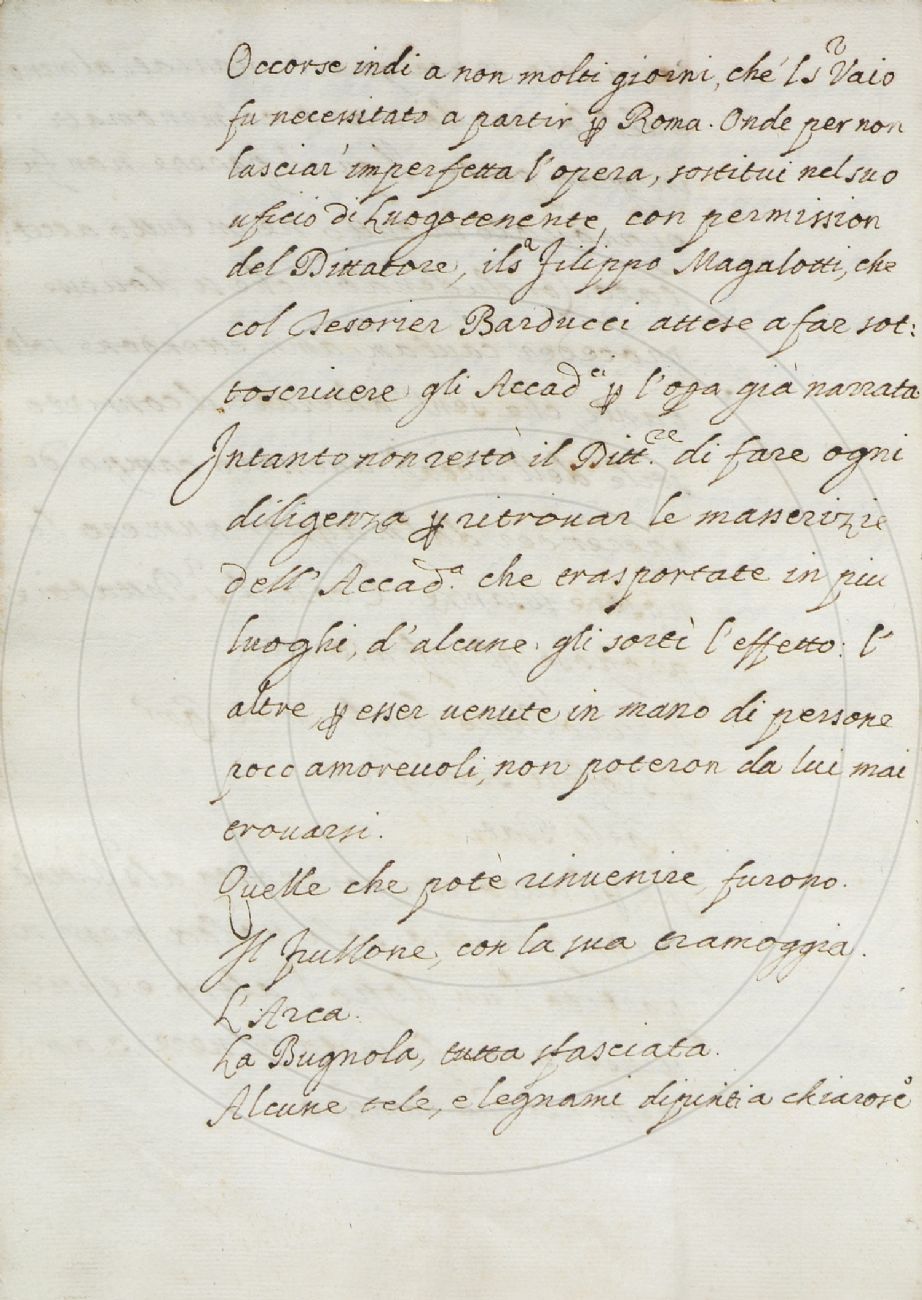 Occorse indi a non molti giorni, che l Sʳ Vaio
fu necessitato a partir ꝑ Roma. Onde per non
lasciar' imperfetta l'opera, sostituì nel suo
uficio di Luogotenente, con permission
del Dittatore, il Sʳ Filippo Magalotti, che
col Tesorier Barducci attese a far sot:
toscrivere gli Accadᶜⁱ ꝑ l'oꝑa già narrata
Intanto non restò il Dittʳᵉ. di fare ogni
diligenza ꝑ ritrovar le masserizie
dell' Accadᵃ. che trasportate in piu
luoghi, d'alcune gli sortì l'effetto: l'
altre ꝑ esser venute in mano di persone
poco amorevoli, non poteron da lui mai
trovarsi.
Quelle che potè rinvenire, furono.
Il frullone, con la sua tramoggia.
L'Arca.
La Bugnola, tutta sfasciata.
Alcune tele, e legnami dipinti a chiarosᵒ